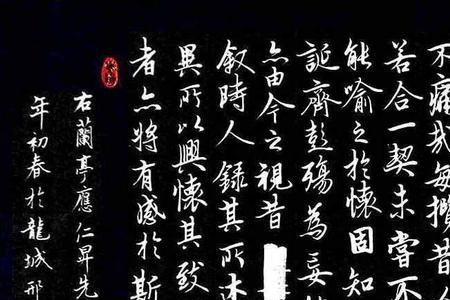 不痛哉每攬昔
若合一契未嘗不
能喻之於懷固知
誕齊彭殤為妄
亦由今之視昔
敘時人錄其所述
異所以興懷其致
者亦將有感於斯
右蘭亭應仁昇先
年初春於龍城邢